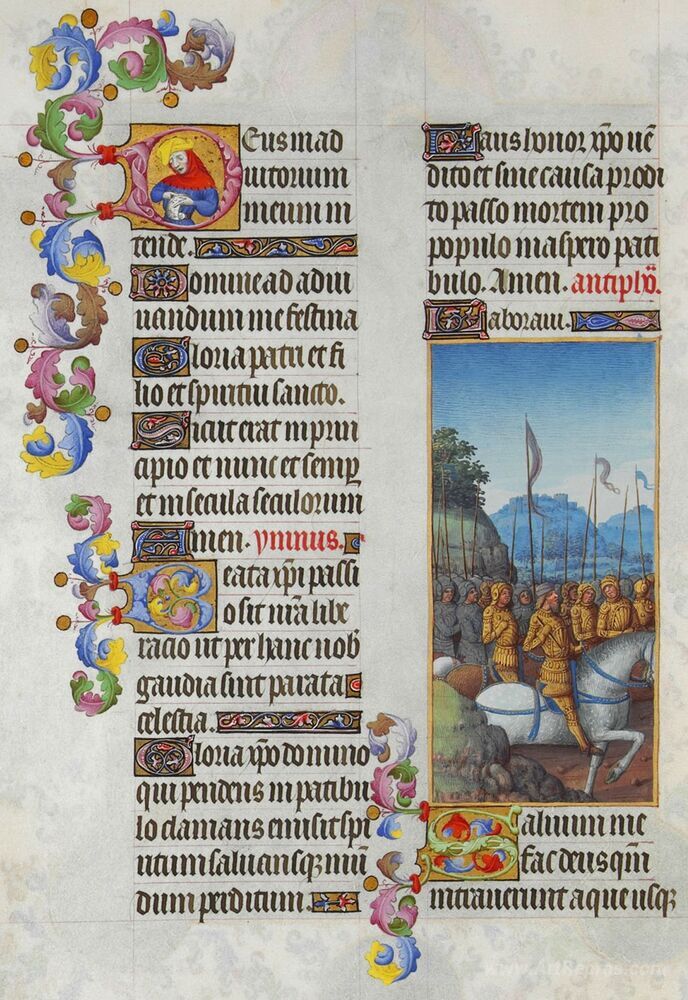 Deus in ad
iutorium
meum in
tende.
Domine ad adiu
uandum me festina
Gloria patri et fi
lio et spiritui sancto.
Sicut erat in prin
cipio et nunc et semp
et in secula seculorum
Amen. ymnus.
Beata xpi passi
o sit nra libe
racio ut per hanc nob
gaudia sint parata
celestia.
Gloria xpo domino
qui pendens in patibu
lo clamans emisit spi
ritum saluans mun
dum perditum.
Laus honor xpo uen
dito et sine causa prodi
to passo mortem pro
populo in aspero pati
bulo. Amen. antiphon.
Laboraui.
Saluum me
fac deus qm
intrauerunt aque usq
www.ArtRepros.com